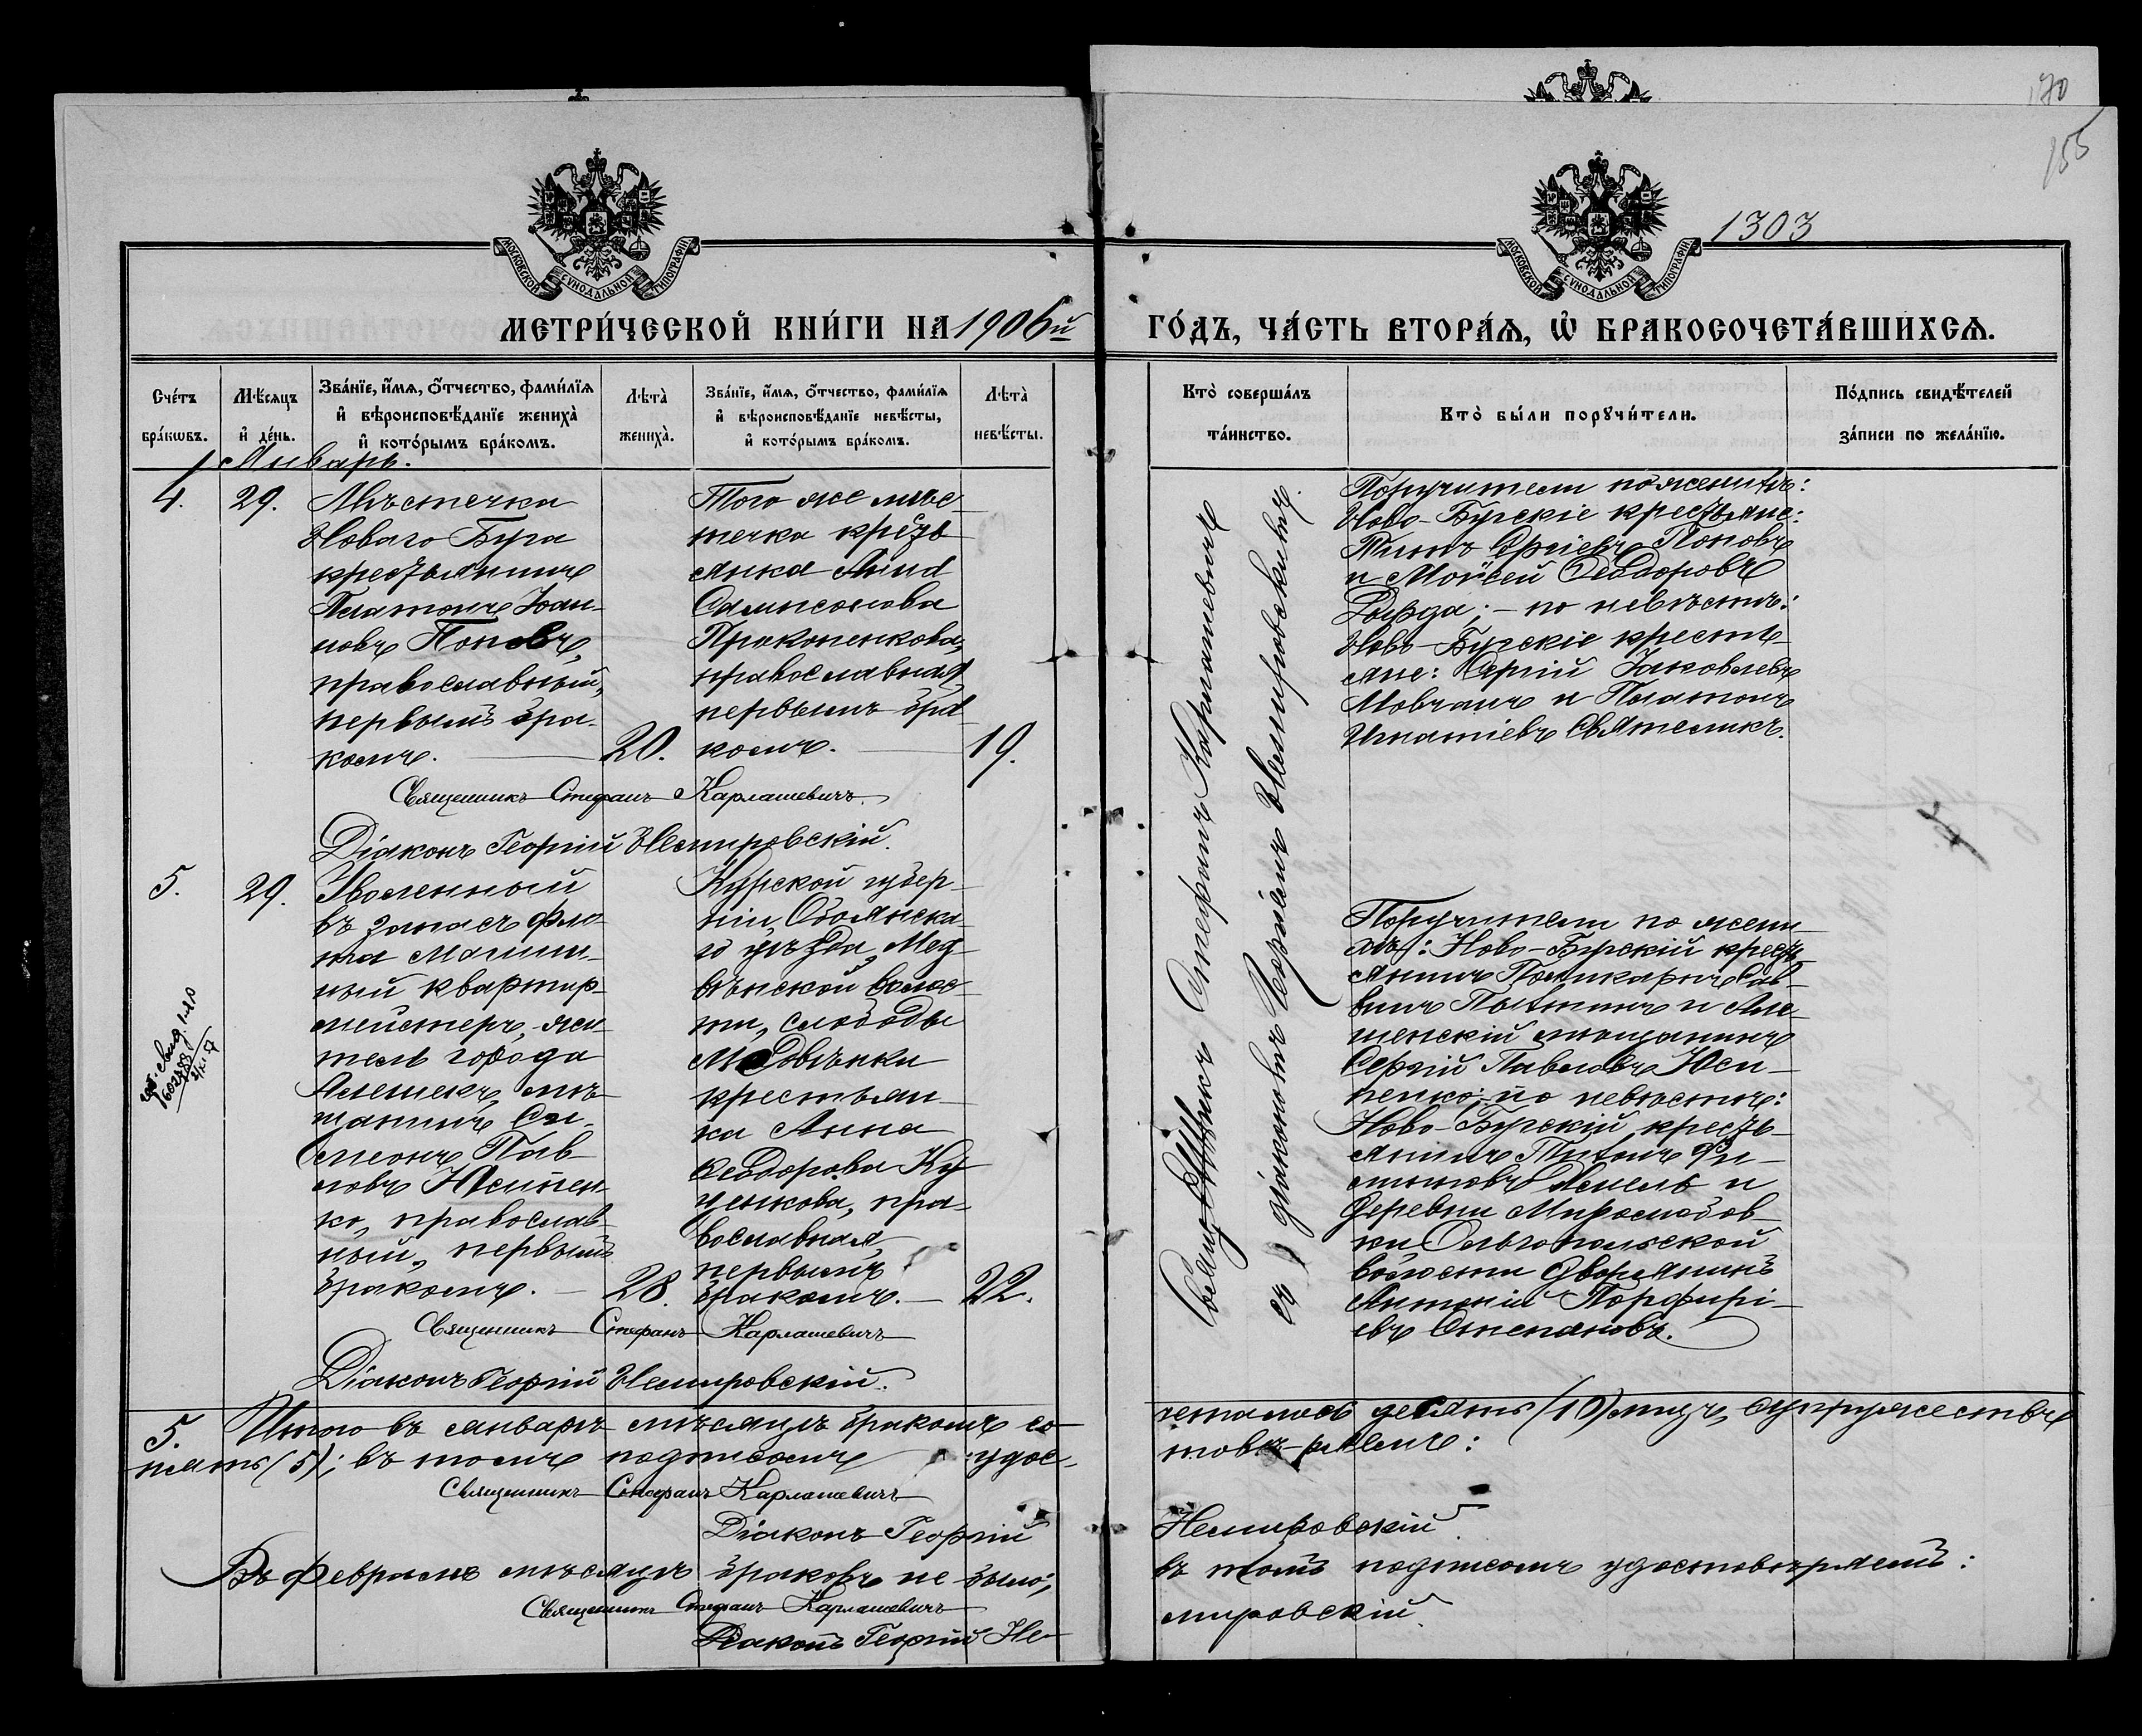 170
155
1303
МОСКОВСКОЙ СѴНОДАЛЬНОЙ ТИПОГРАФІИ
МОСКОВСКОЙ СѴНОДАЛЬНОЙ ТИПОГРАФІИ
МЕТРИ́ЧЕСКОЙ КНИ́ГИ НА 1906й
ГО́ДЪ, ЧА́СТЬ ВТОРА́Ѧ, Ѽ БРАКОСОЧЕТА́ВШИХСѦ.
Сче́тъ бра́кѡвъ.
Мѣ́сѧцъ и҆ де́нь.
Зва́нїе, и҆́мѧ, ѻ҆́тчество, фами́лїѧ и҆ вѣроисповѣ́данїе жениха̀ и҆ кото́рымъ бра́комъ.
Лѣта̀ жениха̀.
Зва́нїе, и҆́мѧ, ѻ҆́тчество, фами́лїѧ и҆ вѣроисповѣ́данїе невѣ́сты, и҆ кото́рымъ бра́комъ.
Лѣта̀ невѣ́сты.
Кто̀ соверша́лъ та́инство.
Кто̀ бы́ли порꙋчи́тели.
По́дпись свидѣ́телей за́писи по жела́нїю.
Январь.
4.
29.
Мѣстечка
Новаго Буга
крестьянинъ
Платонъ Іоан-
новъ Поповъ,
православный,
первымъ бра-
комъ.
20.
Того же мѣс-
течка кресть-
янка Анна
Сампсонова
Прокопенкова,
православная,
первымъ бра-
комъ.
19.
Священникъ Стефанъ Карлашевичъ
съ діакономъ Георгіемъ Немировскимъ.
Поручители по женихѣ:
Ново-Бугскіе крестьяне:
Титъ Сергіевъ Поповъ
и Моисей Ѳеодоровъ
по невѣстѣ:
Ново-Бугскіе кресть-
яне: Сергій Іаковлевъ
Мовчанъ и Платонъ
Игнатіевъ Святеликъ.
Священникъ Стефанъ Карлашевичъ.
Діаконъ Георгій Немировскій.
5.
29.
Уволенный
въ запасъ фло-
та Машин-
ный квартир-
мейстеръ, жи-
тель города
Алешекъ, мѣ-
щанинъ Си-
меонъ Пав-
ловъ Юсипен-
ко, православ-
ный, первымъ
бракомъ.
28.
Курской губер-
ніи, Обоянска-
го уѣзда, Мед-
вѣнской волос-
ти, слободы
Медвѣнки
крестьян-
ка Анна
Ѳеодорова Ку-
ценкова, пра-
вославная,
первымъ
бракомъ.
22.
Поручители по жени-
хѣ: Ново-Бугскій кресть-
янинъ Поликарпъ Сав-
винъ и Але-
шенскій мѣщанинъ
Сергій Павловъ Юси-
пенко; по невѣстѣ:
Ново-Бугскій кресть-
янинъ Титъ Фи-
и
деревни Миролюбов-
ки Ольгопольской
волости дворянинъ
Антоній Порфирі-
евъ Степановъ.
Священникъ Стефанъ Карлашевичъ
Діаконъ Георгій Немировскій.
5.
Итого въ январѣ мѣсяцѣ бракомъ со-
четалось десять (10) лицъ, супружествъ
пять (5); въ томъ подписомъ удос-
товѣряемъ:
Священникъ Стефанъ Карлашевичъ
Діаконъ Георгій
Немировскій.
Въ февралѣ мѣсяцѣ браковъ не было;
въ томъ подписомъ удостовѣряемъ:
Священникъ Стефанъ Карлашевичъ
Діаконъ Георгій Не-
мировскій.